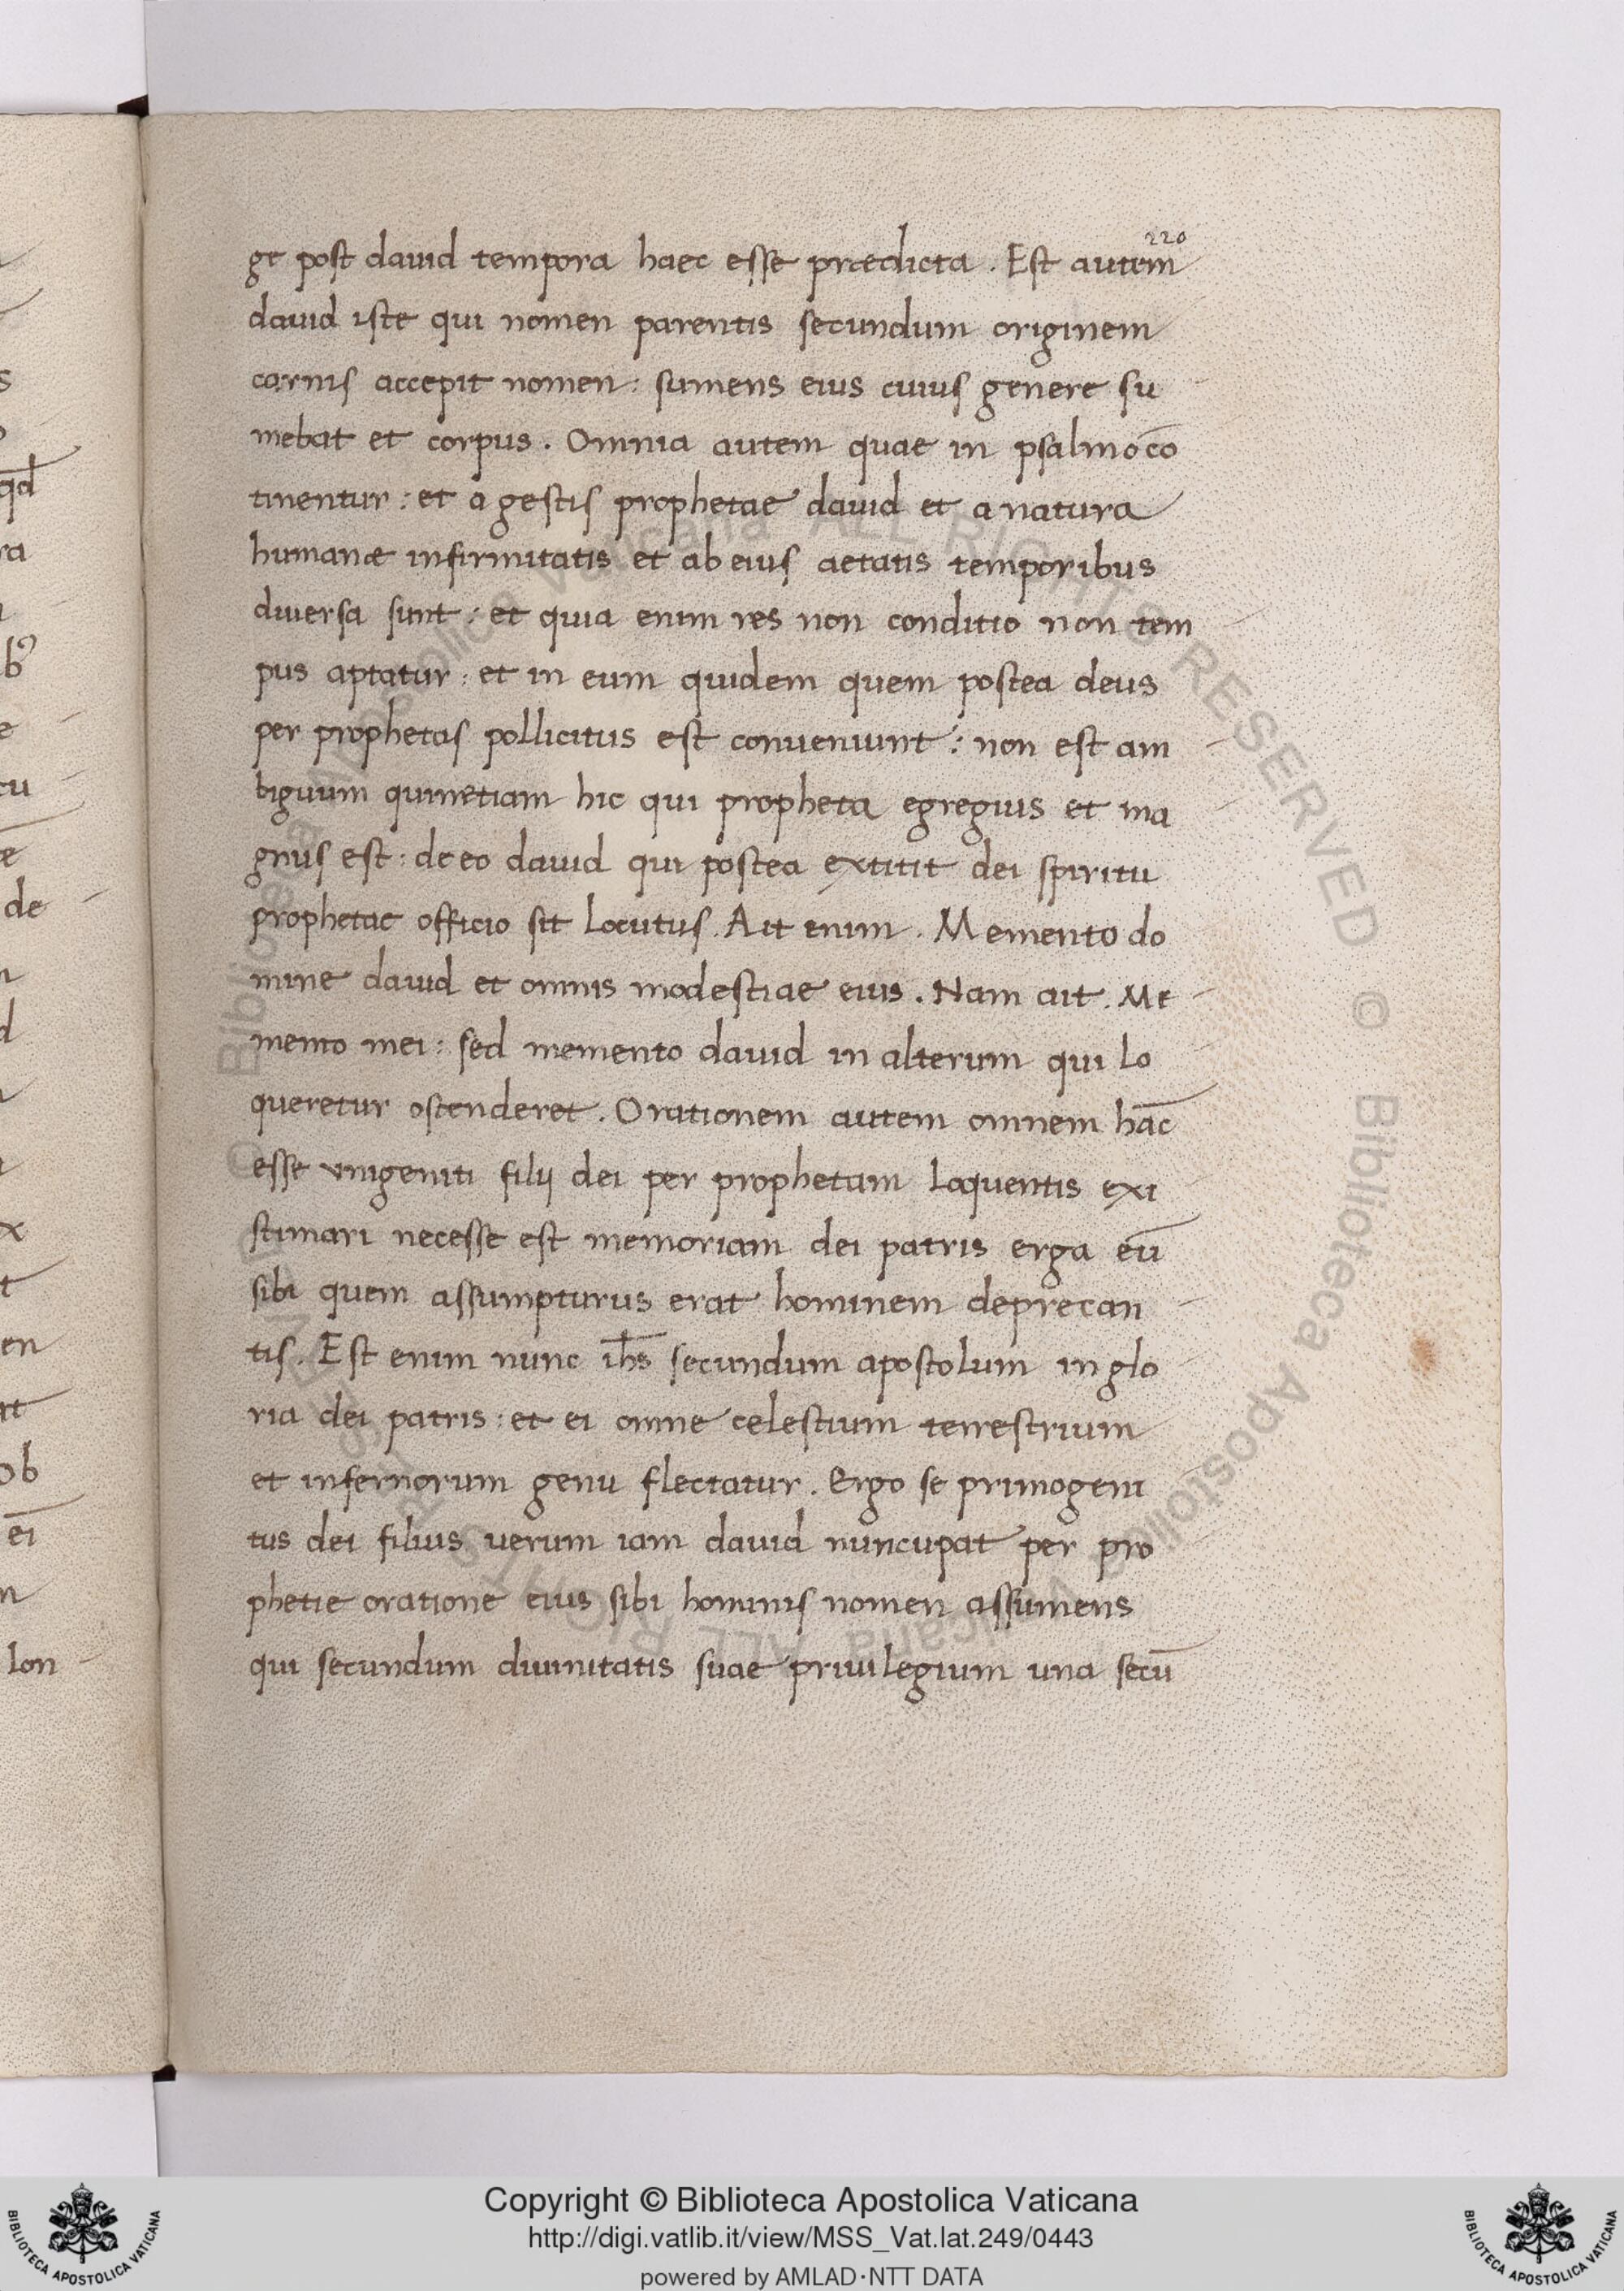 220
ge post dauid tempora haec esse praedicta. Est autem
dauid iste qui nomen parentis secundum originem
carnis accepit nomen: sumens eius cuius genere su
mebat et corpus. Omnia autem quae in psalmo cō
tinentur: et a gestis prophetae dauid et a natura
humanae infirmitatis et ab eius aetatis temporibus
diuersa sunt: et quia enim res non conditio non tem
pus aptatur: et in eum quidem quem postea deus
per prophetas pollicitus est conueniunt: non est am
biguum quinetiam hic qui propheta egregius et ma
gnus est: de eo dauid qui postea extitit dei spiritu
prophetae officio sit locutus. Ait enim. Memento do
mine dauid et omnis modestiae eius. Nam ait. Me
mento mei: sed memento dauid in alterum qui lo
queretur ostenderet. Orationem autem omnem hāc
esse vnigeniti filij dei per prophetam loquentis exi
stimari necesse est memoriam dei patris erga eū
sibi quem assumpturus erat hominem deprecan
tis. Est enim nunc ih̄s secundum apostolum in glo
ria dei patris: et ei omne celestium terrestrium
et infernorum genu flectatur. Ergo se primogeni
tus dei filius uerum iam dauid nuncupat per pro
phetie oratione eius sibi hominis nomen assumens
qui secundum diuinitatis suae priuilegium una secū
Copyright © Biblioteca Apostolica Vaticana
http://digi.vatlib.it/view/MSS_Vat.lat.249/0443
powered by AMLAD·NTT DATA